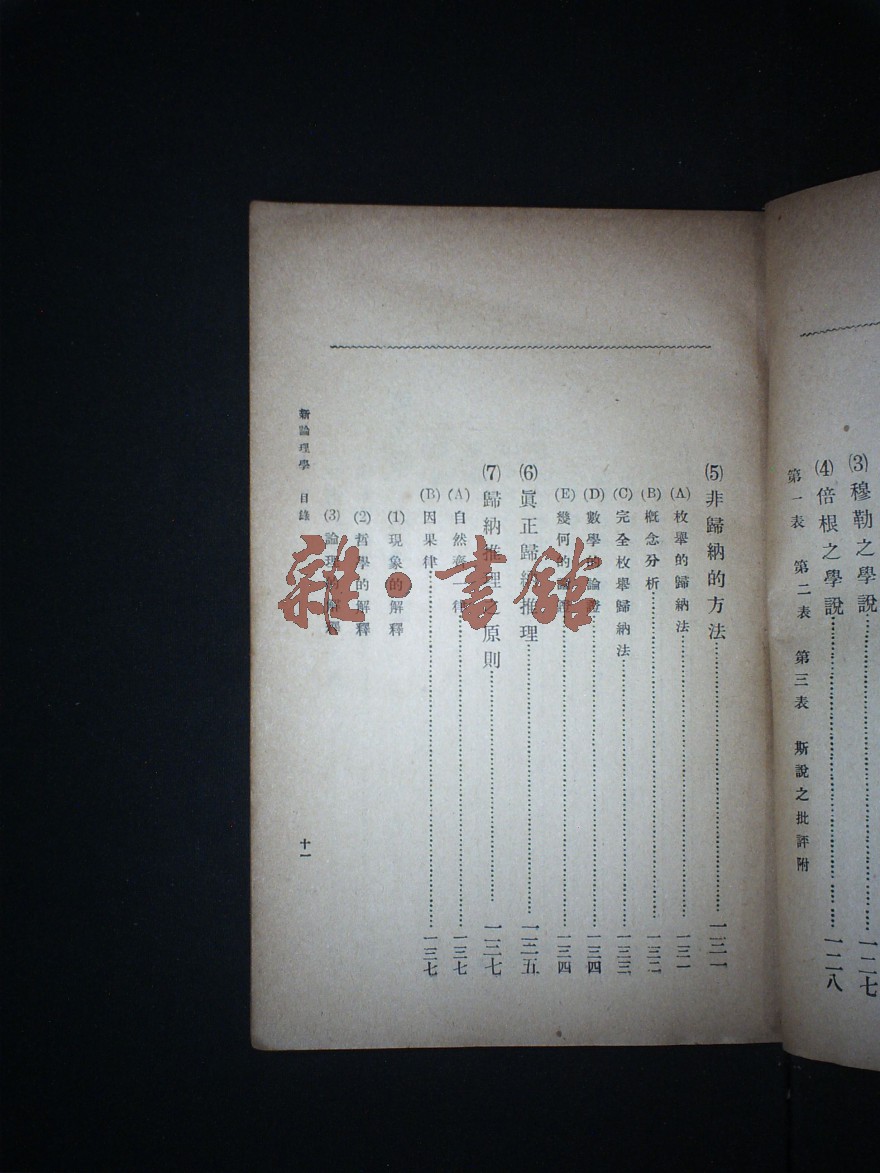 (3)穆勒之學說……一二七
(4)倍根之學說……一二八
第一表 第二表 第三表 斯說之批評附
(5)非歸納的方法……一三一
(A)枚舉的歸納法……一三一
(B)概念分析……一三二
(C)完全枚舉歸納法……一三三
(D)數學的論證……一三四
(E)幾何的論證……一三四
(6)眞正歸納推理……一三五
(7)歸納推理之原則……一三七
(A)自然齊一律……一三七
(B)因果律……一三七
(1)現象的解釋
(2)哲學的解釋
(3)論理的解釋
新論理學 目錄 十一
雜·書館